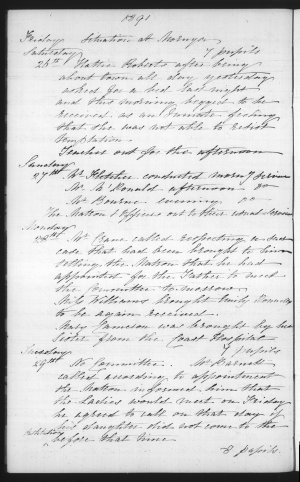 1891
Friday Situation at
Saturday 7 pupils
26th Hattie Roberts after being
about town all day yesterday
asked for a bed last night
and this morning begged to be
received as an inmate feeling
that she was not able to resist
temptation.
Teachers out for the afternoon
Sunday
27th Mr Fletcher conducted morng service
Mr McDonald afternoon Do
Mr Bourne evening Do
The Matron & Officers out to their usual Services
Monday
28th Mr Crane called respecting
case that had been brought to him
telling the Matron that he had
appointed for the Father to meet
the Committee to-morrow
Mrs Williams brought Emily
to be again received.
Mary Jameson was brought by her
Sister from the Hospital
Tuesday 7 pupils
29th No Committee. Mr
called according to appointment
the Matron informed him that
the Ladies would meet on Friday
he agreed to call on that day if
his daughter did not come to the
before that time
8 pupils.